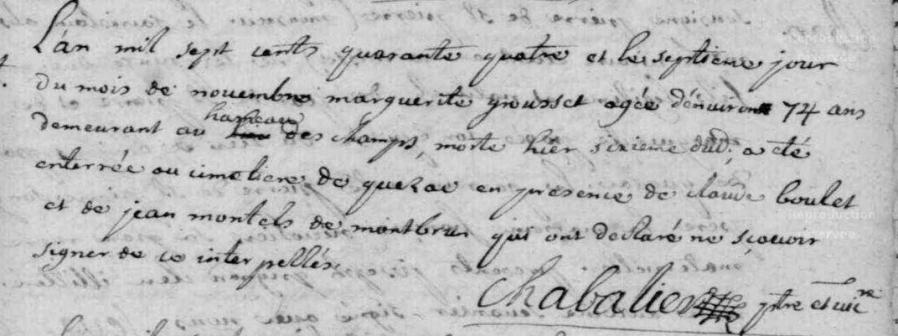 L'an mil sept cents quarante quatre et le septieme jour
du mois de novembre marguerite grousset agée d'environ 74 ans
demeurant au hameau des champs, morte hier sixieme dud; a eté
enterrée au cimetiere de quezac en presence de claude boulet
et de jean montels de montbrun qui ont declaré ne sçavoir
signer de ce interpellés
Chabalier ptre et vic.re